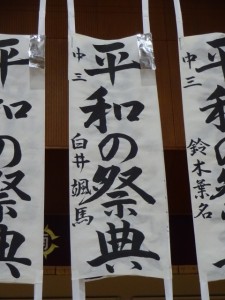 中三
平和の祭典
鈴木葉名
中三
平和の祭典
臼井颯馬
平和の祭典